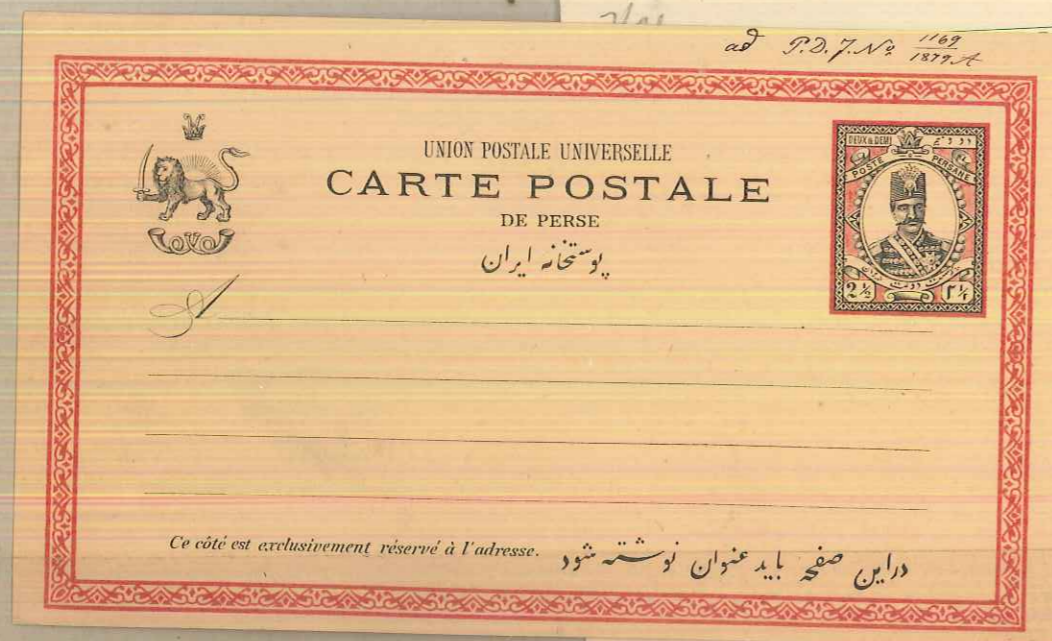 ad P.D.J. No 1169
1879.A
UNION POSTALE UNIVERSELLE
CARTE POSTALE
DE PERSE
پوستخانه ایران
DEUX & DEMI
POSTE PERSANE
2½
۲½
A
Ce côté est exclusivement réservé à l'adresse.
دراین صفحه باید عنوان نوشته شود